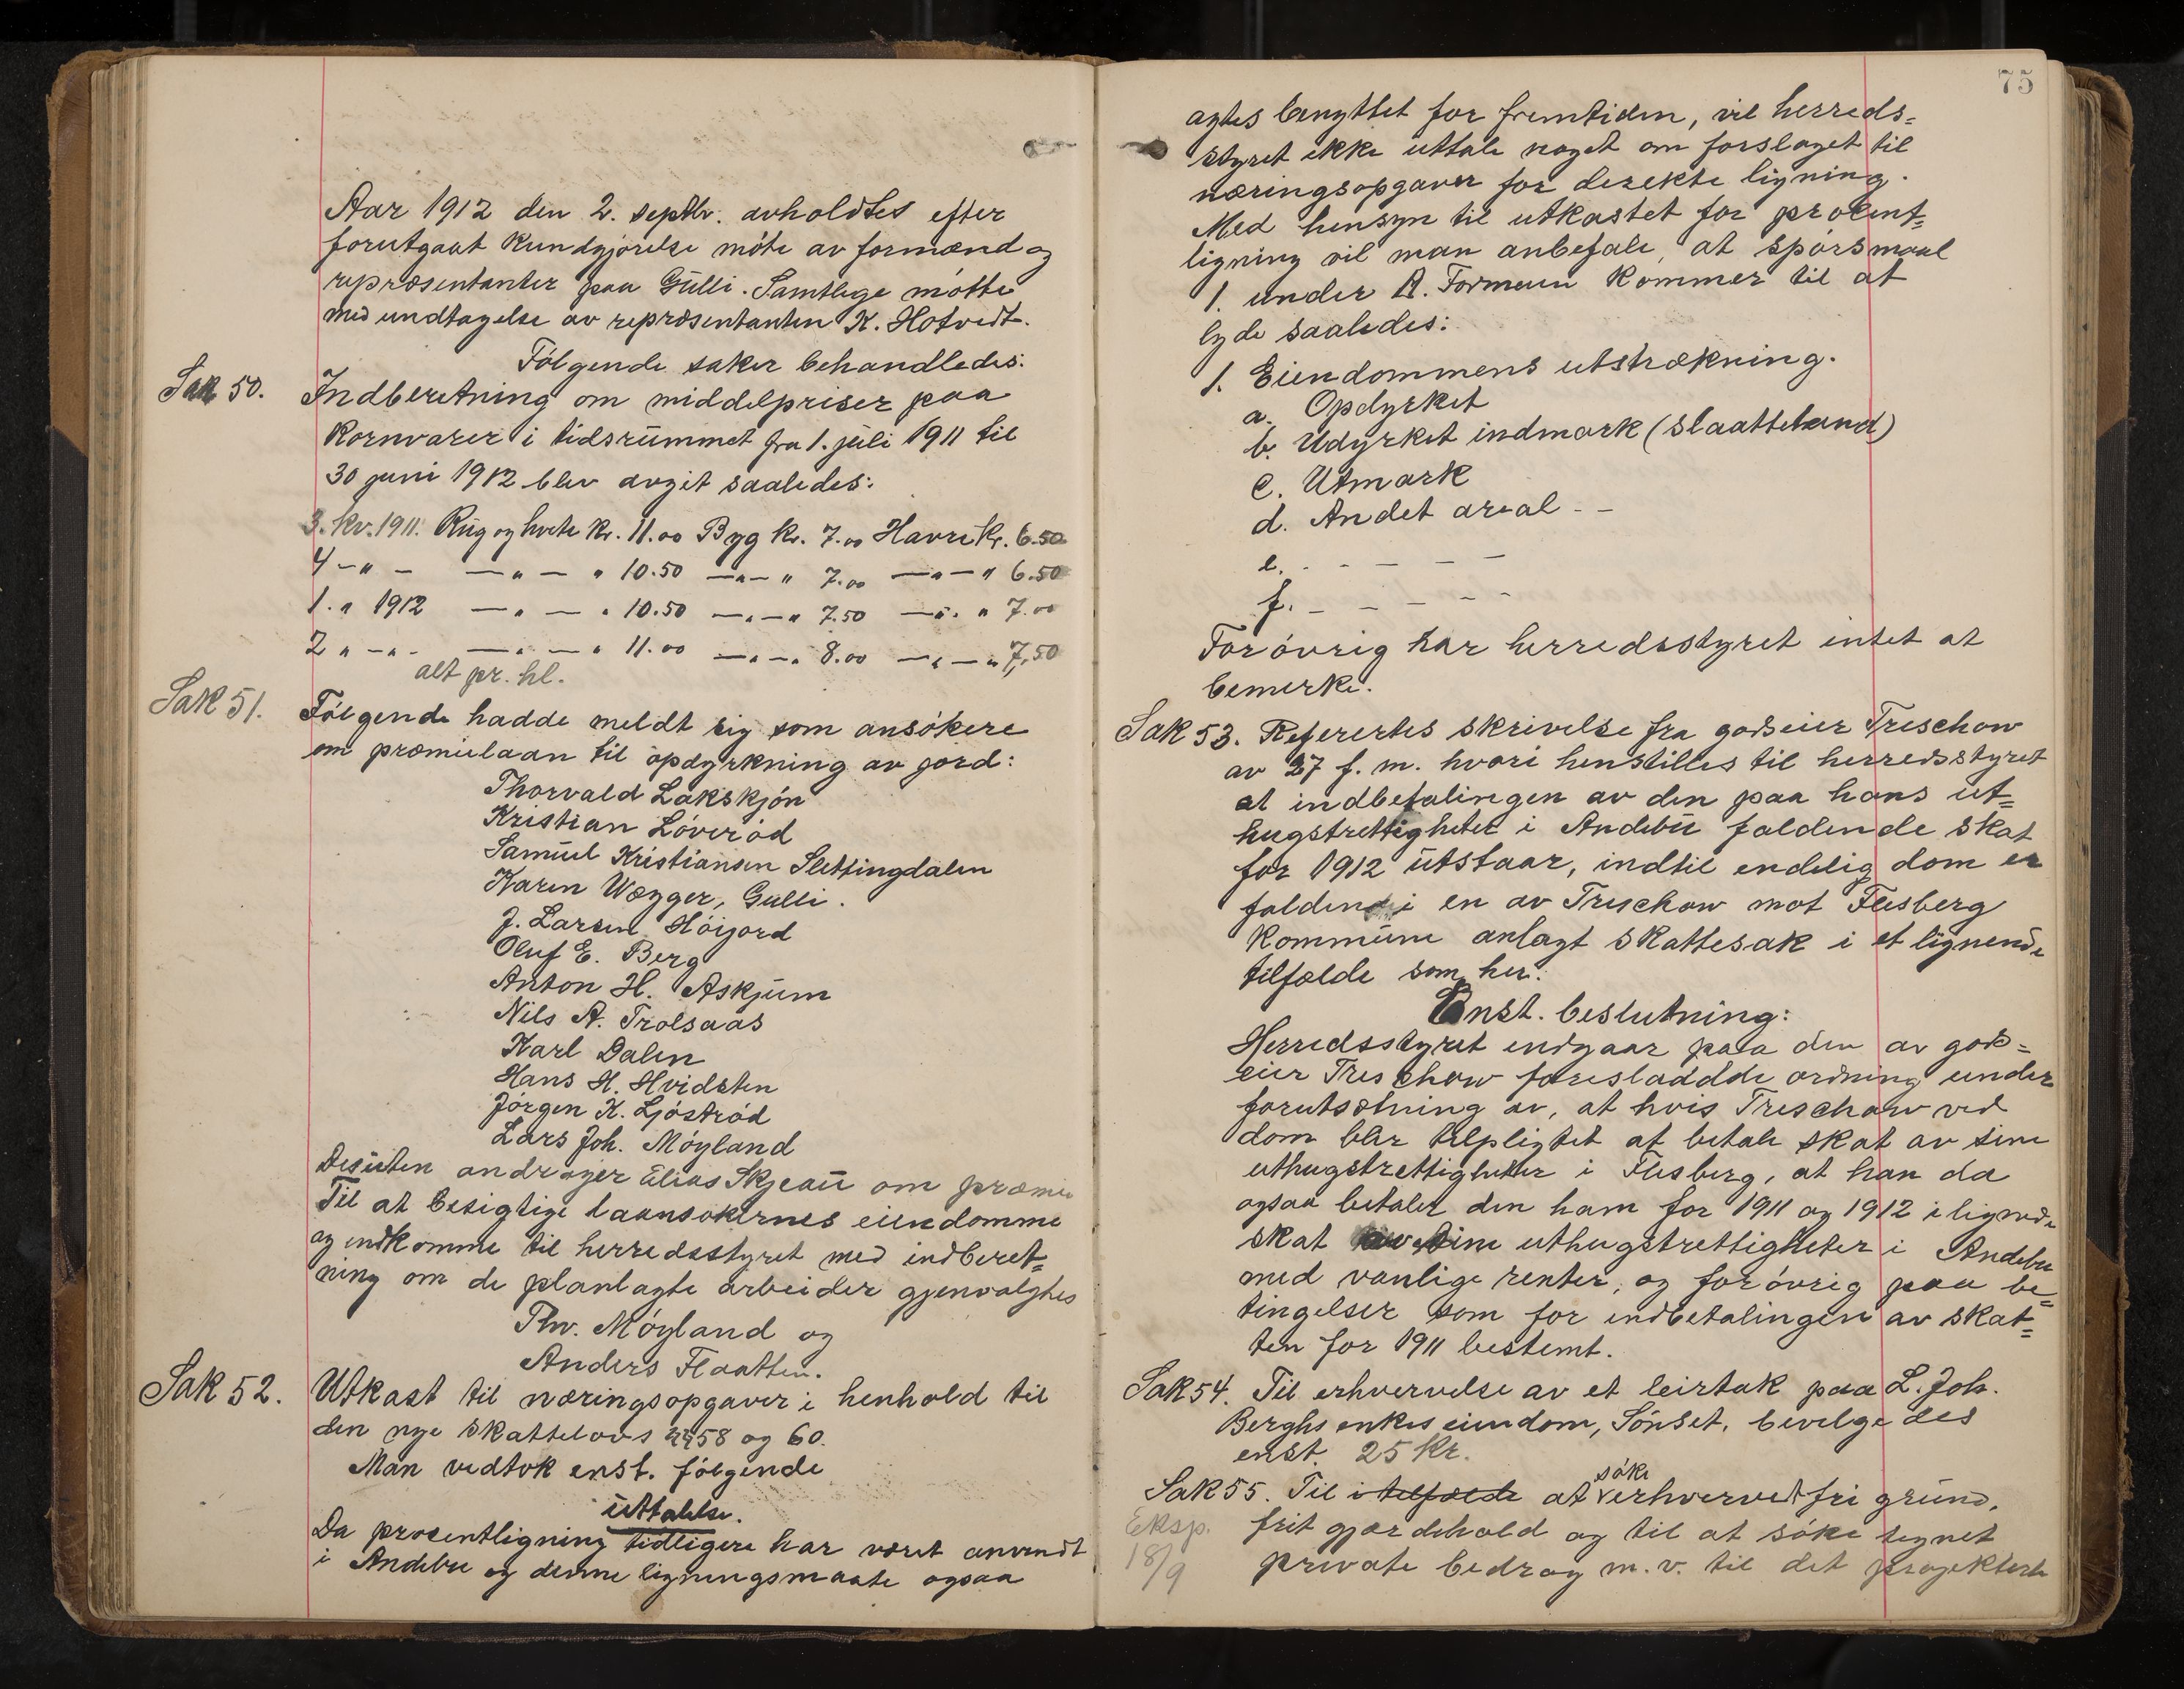 Aar 1912 den 2. septbr. avholdtes efter
forutgaat kundgjørelse møte av formænd og
repræsentanter paa Gulli. Samtlige møtte
med undtagelse av repræsentanten K. Hotvedt.
Følgende saker behandledes:
Sak 50. Indberetning om middelpriser paa
kornvarer i tidsrummet fra 1. juli 1911 til
30 juni 1912 blev avgit saaledes:
3. kv. 1911. Rug og hvete kr. 11.00 Byg kr. 7.00 Havre kr. 6.50
4 - " - — " — " 10.50 — " — " 7.00 — " — " 6.50
1. " 1912 — " — " 10.50 — " — " 7.50 — " — " 7.00
2 " - " - — " — " 11.00 — " — " 8.00 — " — " 7,50
alt pr. hl.
Sak 51. Følgende hadde meldt sig som ansøkere
om præmielaan til opdyrkning av jord:
Thorvald Lakskjøn
Kristian Løverød
Samuel Kristiansen Slettingdalen
Karen Wegger, Gulli.
J. Larsen Høijord
Oluf E. Berg
Anton H. Askjum
Nils A. Trolsaas
Karl Dalen
Hans H. Hvidsten
Jørgen K. Ljøstrød
Lars Joh. Møyland
Desuten andrager Elias Skjeau om præmie
Til at besigtige laansøkernes eiendomme
og indkomme til herredsstyret med indberet=
ning om de planlagte arbeider gjenvalgtes
Thv. Møyland og
Anders Flaatten.
Sak 52. Utkast til næringsopgaver i henhold til
den nye skattelovs §§ 58 og 60.
Man vedtok enst. følgende
uttalelse.
Da procentligning tidligere har været anvendt
i Andebu og denne ligningsmaate ogsaa
75
agtes benyttet for fremtiden, vil herreds=
styret ikke uttale noget om forslaget til
næringsopgaver for derekte ligning.
Med hensyn til utkastet for procent=
ligning vil man anbefale, at spørsmaal
1. under A. Formuen kommer til at
lyde saaledes:
1. Eiendommens utstrækning.
a. Opdyrket
b. Udyrket indmark (slaatteland)
c. Utmark
d. Andet areal - -
e. - - - - -
f. - - - - -
Forøvrig har herredsstyret intet at
bemerke.
Sak 53. Refertes skrivelse fra godseier Treschow
av 27 f. m. hvori henstilles til herredsstyret
at indbetalingen av den paa hans ut=
hugstrettigheter i Andebu faldende skat
for 1912 utstaar, indtil endelig dom er
falden i en av Treschow mot Flesberg
kommune anlagt skattesak i et lignende
tilfælde som her.
Enst. beslutning:
Herredsstyret indgaar paa den av gods=
eier Treschow foresladdde ordning under
forutsætning av, at hvis Treschow ved
dom blir tilpligtet at betale skat av sine
uthugstrettigheter i Flesberg, at han da
ogsaa betaler den ham for 1911 og 1912 ilignede
skat av sine uthugstrettigheter i Andebu
med vanlige renter, og forøvrig paa be=
tingelser som for indbetalingen av skat=
ten for 1911 bestemt.
Sak 54. Til erhvervelse av et leirtak paa L. Joh.
Berghs enkes eiendom, Sønset, bevilgedes
enst. 25 Kr.
Sak 55. Til i tilfælde at søke erhvervet fri grund,
Eksp. frit gjærdehold og til at søke tegnet
18/9 private bedrag m.v. til det projekterte